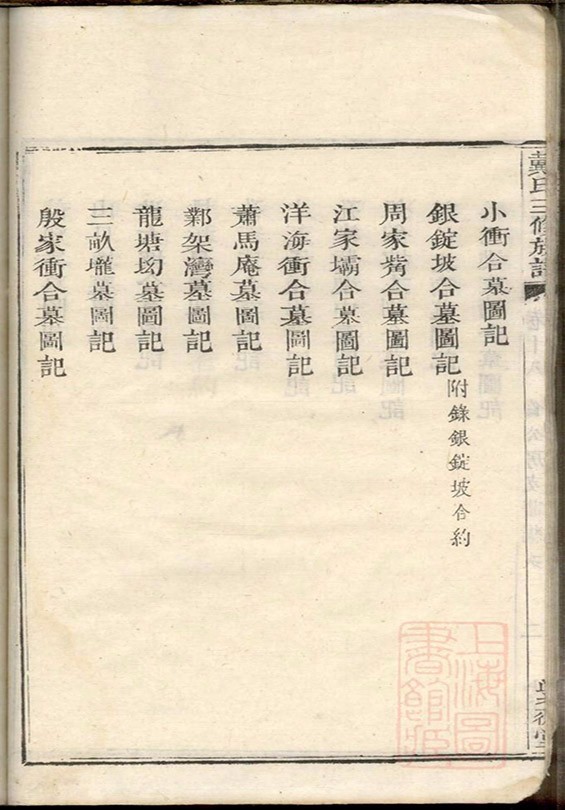 戴氏三修族譜
小衝合墓圖記
銀錠坡合墓圖記 附錄銀錠坡合約
周家嘴合墓圖記
江家壩合墓圖記
洋海衝合墓圖記
蕭馬庵墓圖記
鄴架灣墓圖記
龍塘坳墓圖記
三畝壠墓圖記
殷家衝合墓圖記
上海圖書館藏